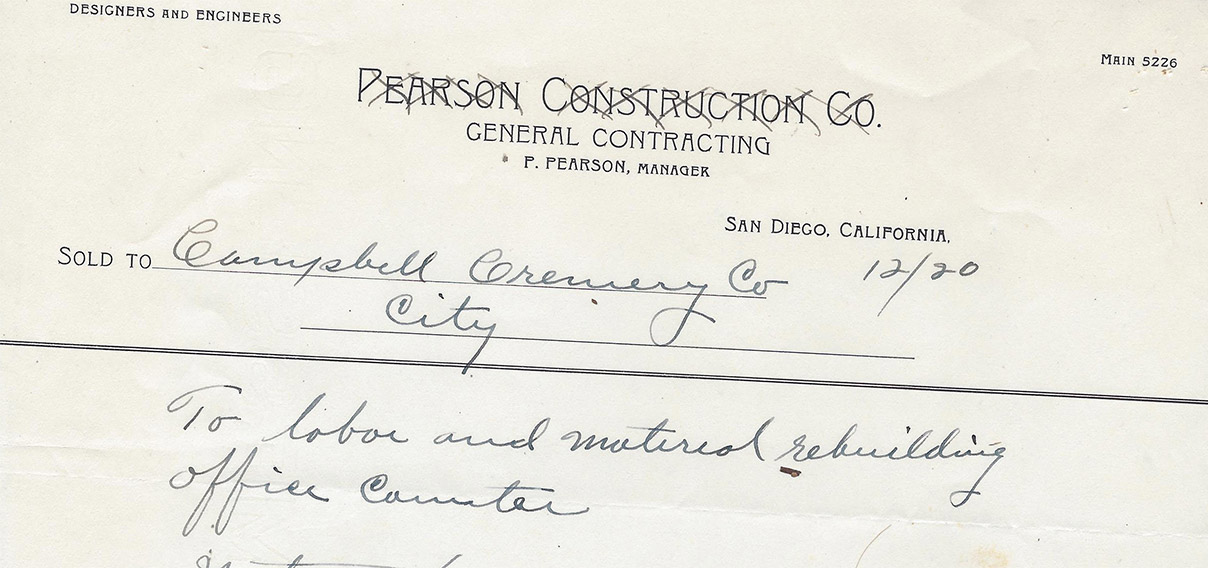 DESIGNERS AND ENGINEERS
MAIN 5226
PEARSON CONSTRUCTION CO.
GENERAL CONTRACTING
P. PEARSON, MANAGER
SAN DIEGO, CALIFORNIA,
SOLD TO Campbell Cremery Co 12/20
City
To labor and material rebuilding
office Counter